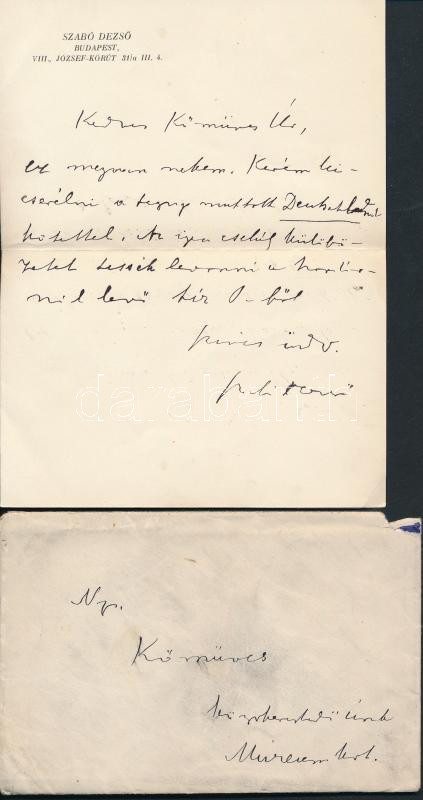 SZABÓ DEZSŐ
BUDAPEST,
VIII., JÓZSEF-KÖRÚT 31/a III. 4.
Kedves Kőmüves Úr,
ez megvan nekem. Kérem ki-
cserélni a tegnap mutatott
kötettel. Az igen csekély külömbö-
zetet tessék levonni a
nál levő tíz P-ből
szives üdv.
Szabó Dezső
darabanth
Ngs.
Kőmüves
könyvkereskedő úrnak
Muzeum krt.